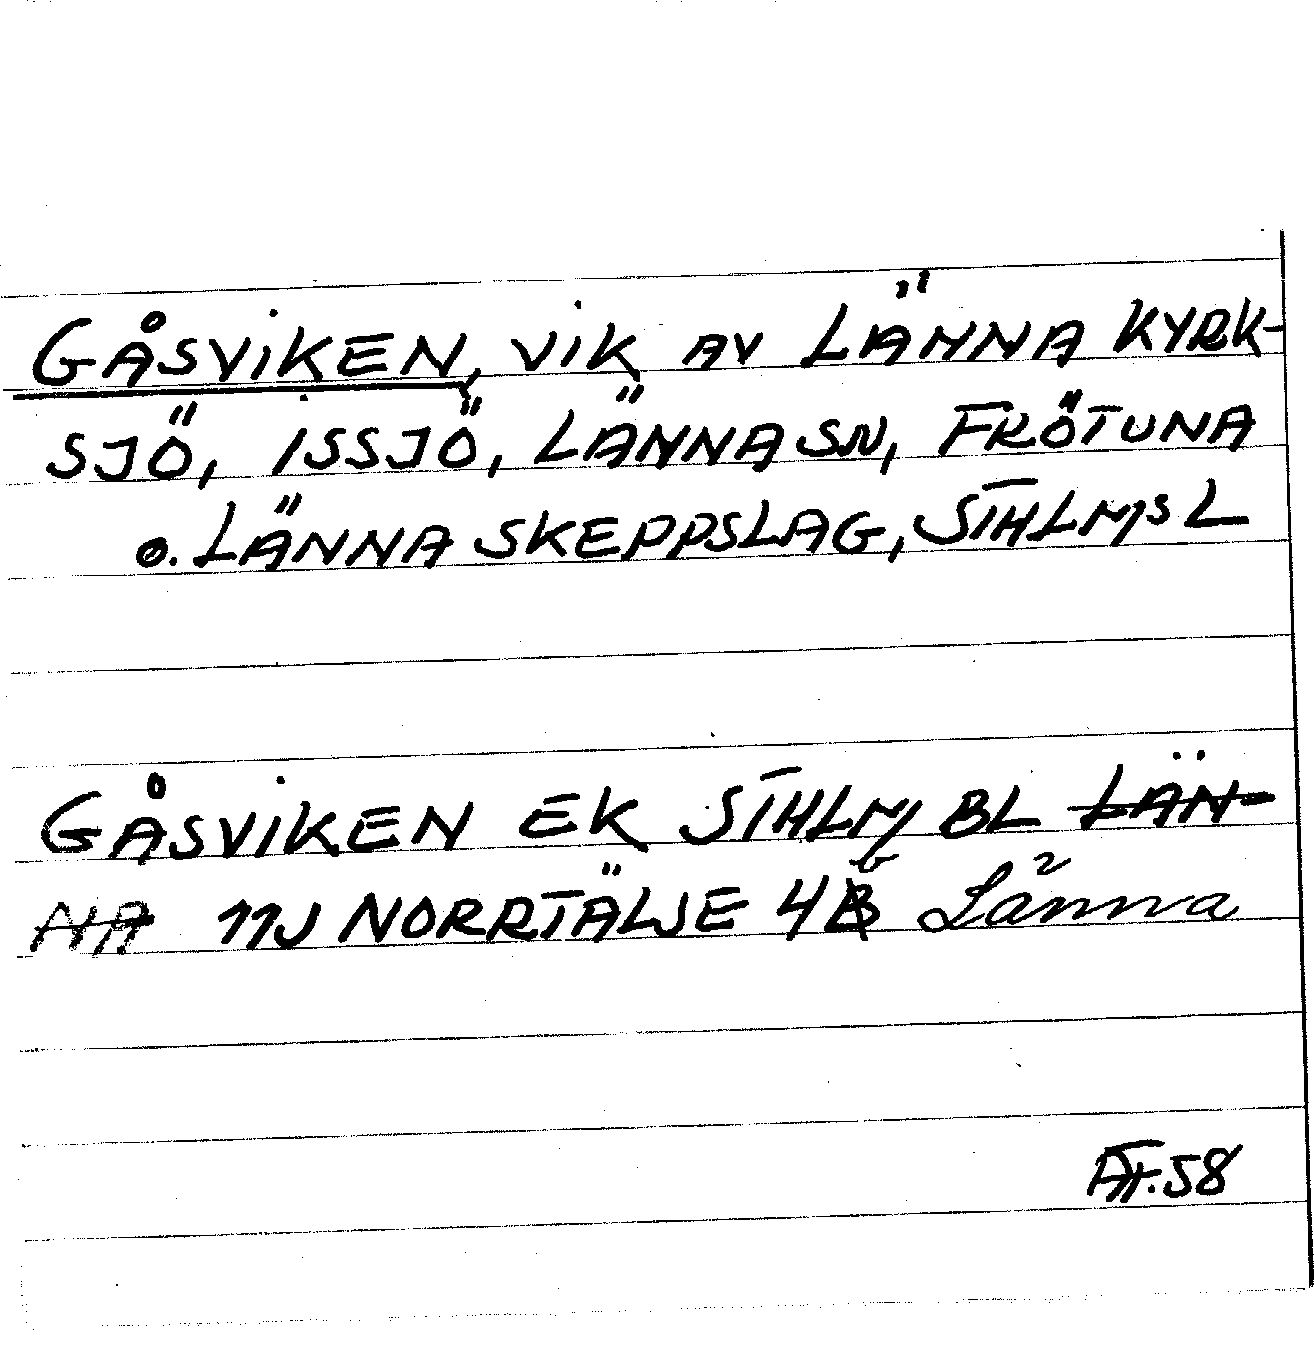 GÅSVIKEN, VIK AV LÄNNA KYRK-
SJÖ, ISSJÖ, LÄNNA SN, FRÖTUNA
o. LÄNNA SKEPPSLAG, STHLMS L
GÅSVIKEN EK STHLM BL LÄN-
NA 11J NORRTÄLJE 4b Länna
58